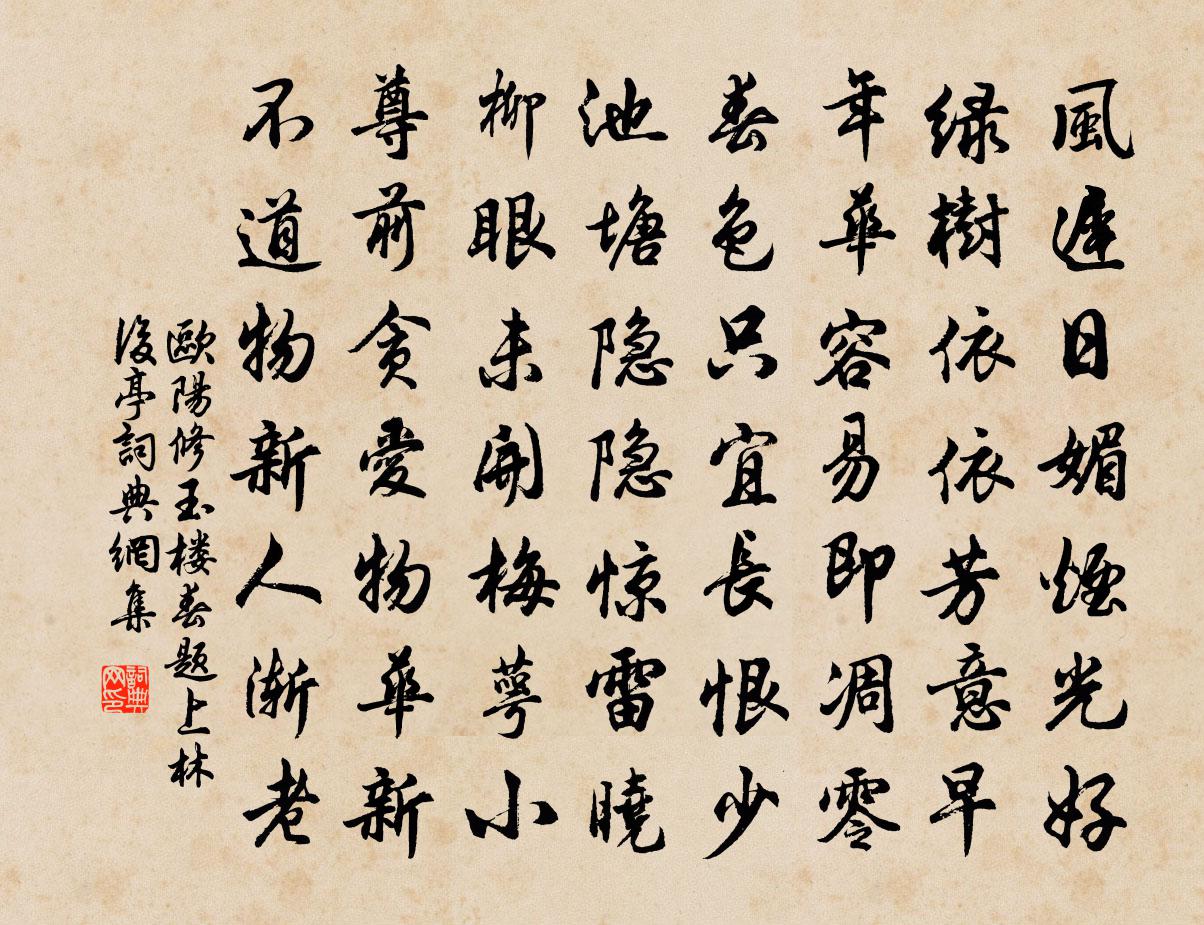 風遲日媚煙光好
緑樹依依芳意早
年華容易即凋零
春色只宜長恨少
池塘隐隐惊雷曉
柳眼未開梅萼小
尊前贪愛物華新
不道物新人漸老
歐陽修玉楼春题上林
後亭詞典網集
詞典网印